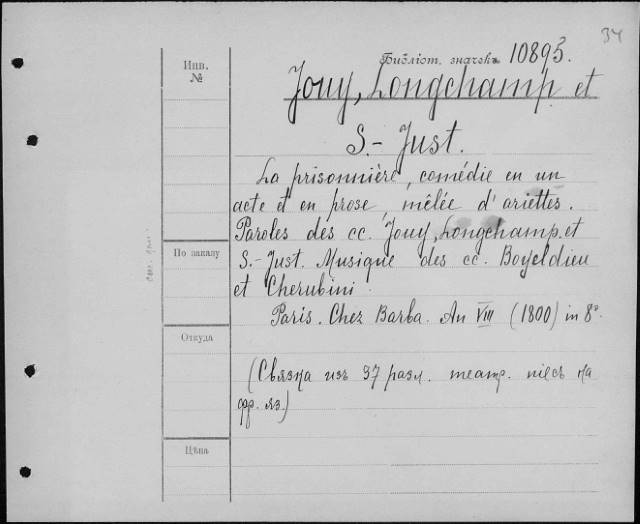 34
Библіот. значекъ 10893.
Инв.
№
Jouy, Longchamp et
S.- Just.
La prisonnière, comédie en un
acte et en prose, mêlée d'ariettes.
Paroles des cc. Jouy, Longchamp et
По заказу
S.-Just. Musique des cc. Boyeldieu
et Cherubini.
Paris. Chez Barba. An VIII (1800) in 8°.
Откуда
(Связка изъ 37 разл. театр. піесъ на
фр. яз.)
Цѣна